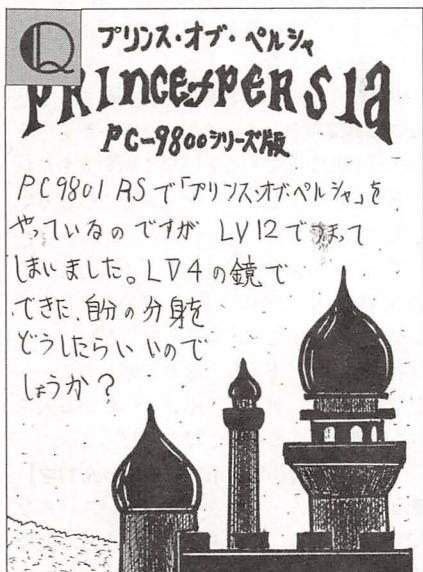 Q
プリンス・オブ・ペルシャ
PRINCE of PERSIA
PC-9800シリーズ版
PC9801RSで「プリンス・オブ・ペルシャ」を
やっているのですが LV12でつまって
しまいました。LV4の鏡で
できた、自分の分身を
どうしたらいいので
しょうか？